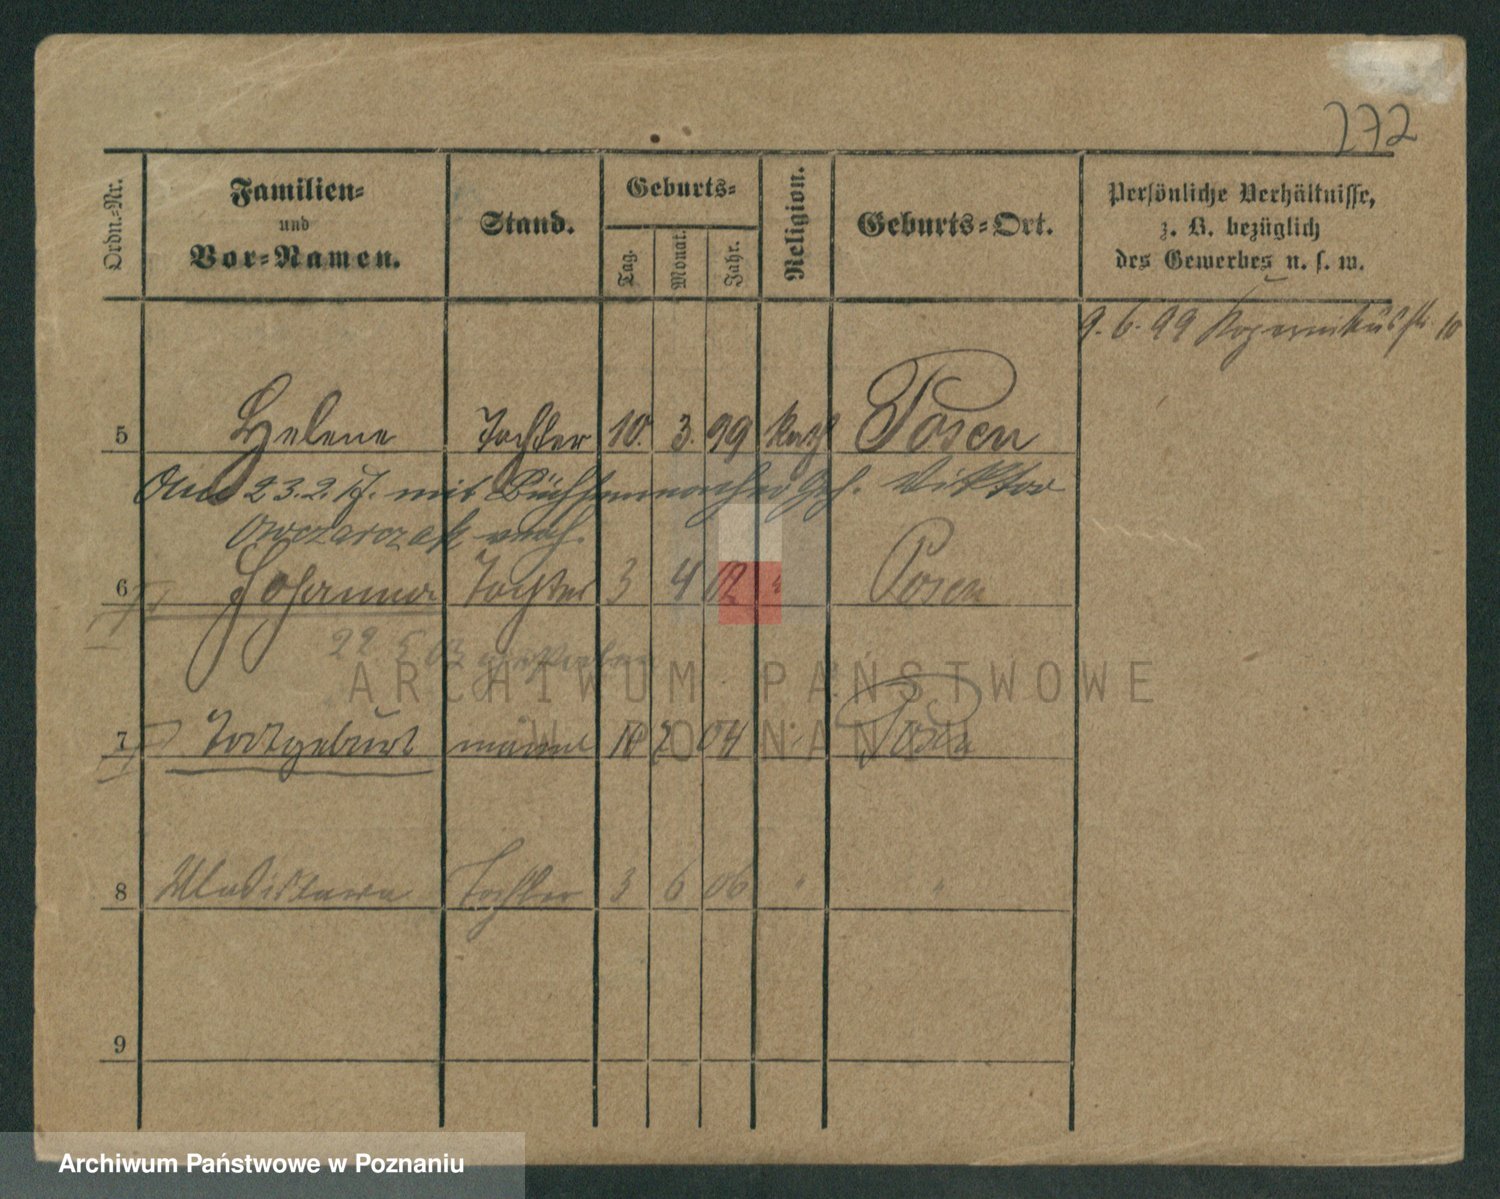 272
Ordn.-Nr.
Familien-
und
Vor-Namen.
Stand.
Geburts-
Tag.
Monat.
Jahr.
Religion.
Geburts-Ort.
Persönliche Verhältnisse,
z. B. bezüglich
des Gewerbes u. s. w.
9. 6. 99 Kopernikusstr. 10
5 Helene Tochter 10. 3. 99 kath Posen
Am 23.2.17. mit Büchsenmacher Geh. Viktor
Owczarczak verh.
6 Johanna Tochter 3 4 02 " Posen
22. 5 03 verstorben
7 Totgeburt männl 10 2 04 " Posen
8 Wladislawa Tochter 3 6 06 " "
9
ARCHIWUM PAŃSTWOWE
W POZNANIU
Archiwum Państwowe w Poznaniu